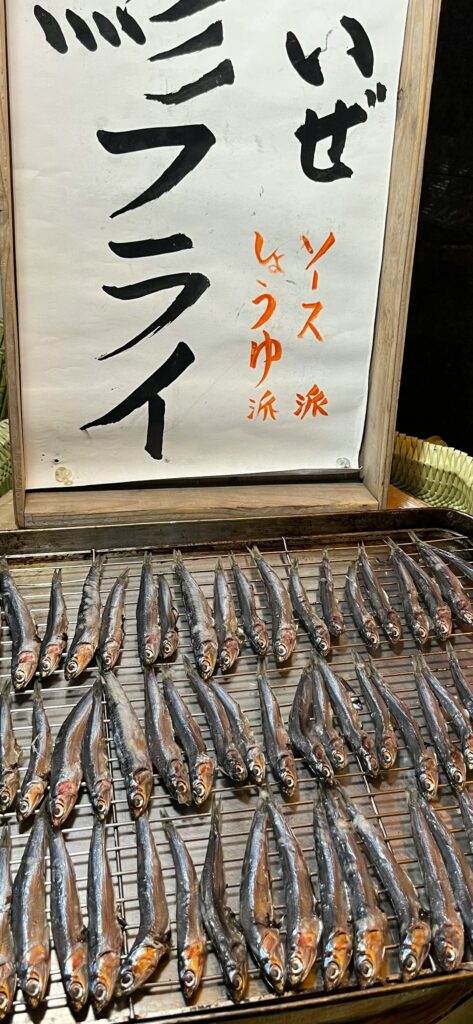 いぜ
ソース派
しょうゆ派
ミフライ